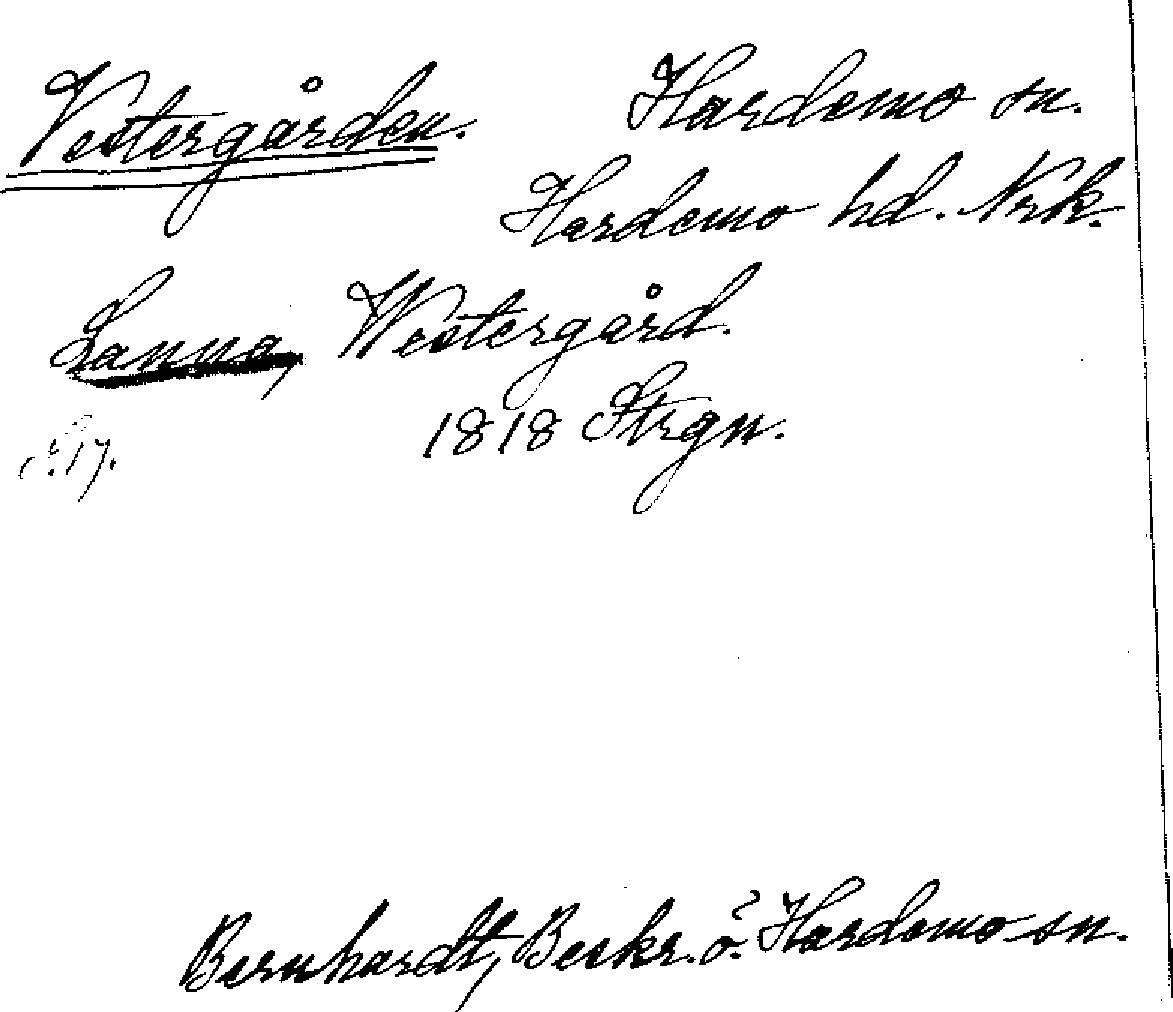 Vestergården.
Hardemo sn.
Hardemo hd. Nrk.
Lanna, Westergård.
1818 Strgn.
s. 17.
Bernhardt, Beskr. ö. Hardemo sn.